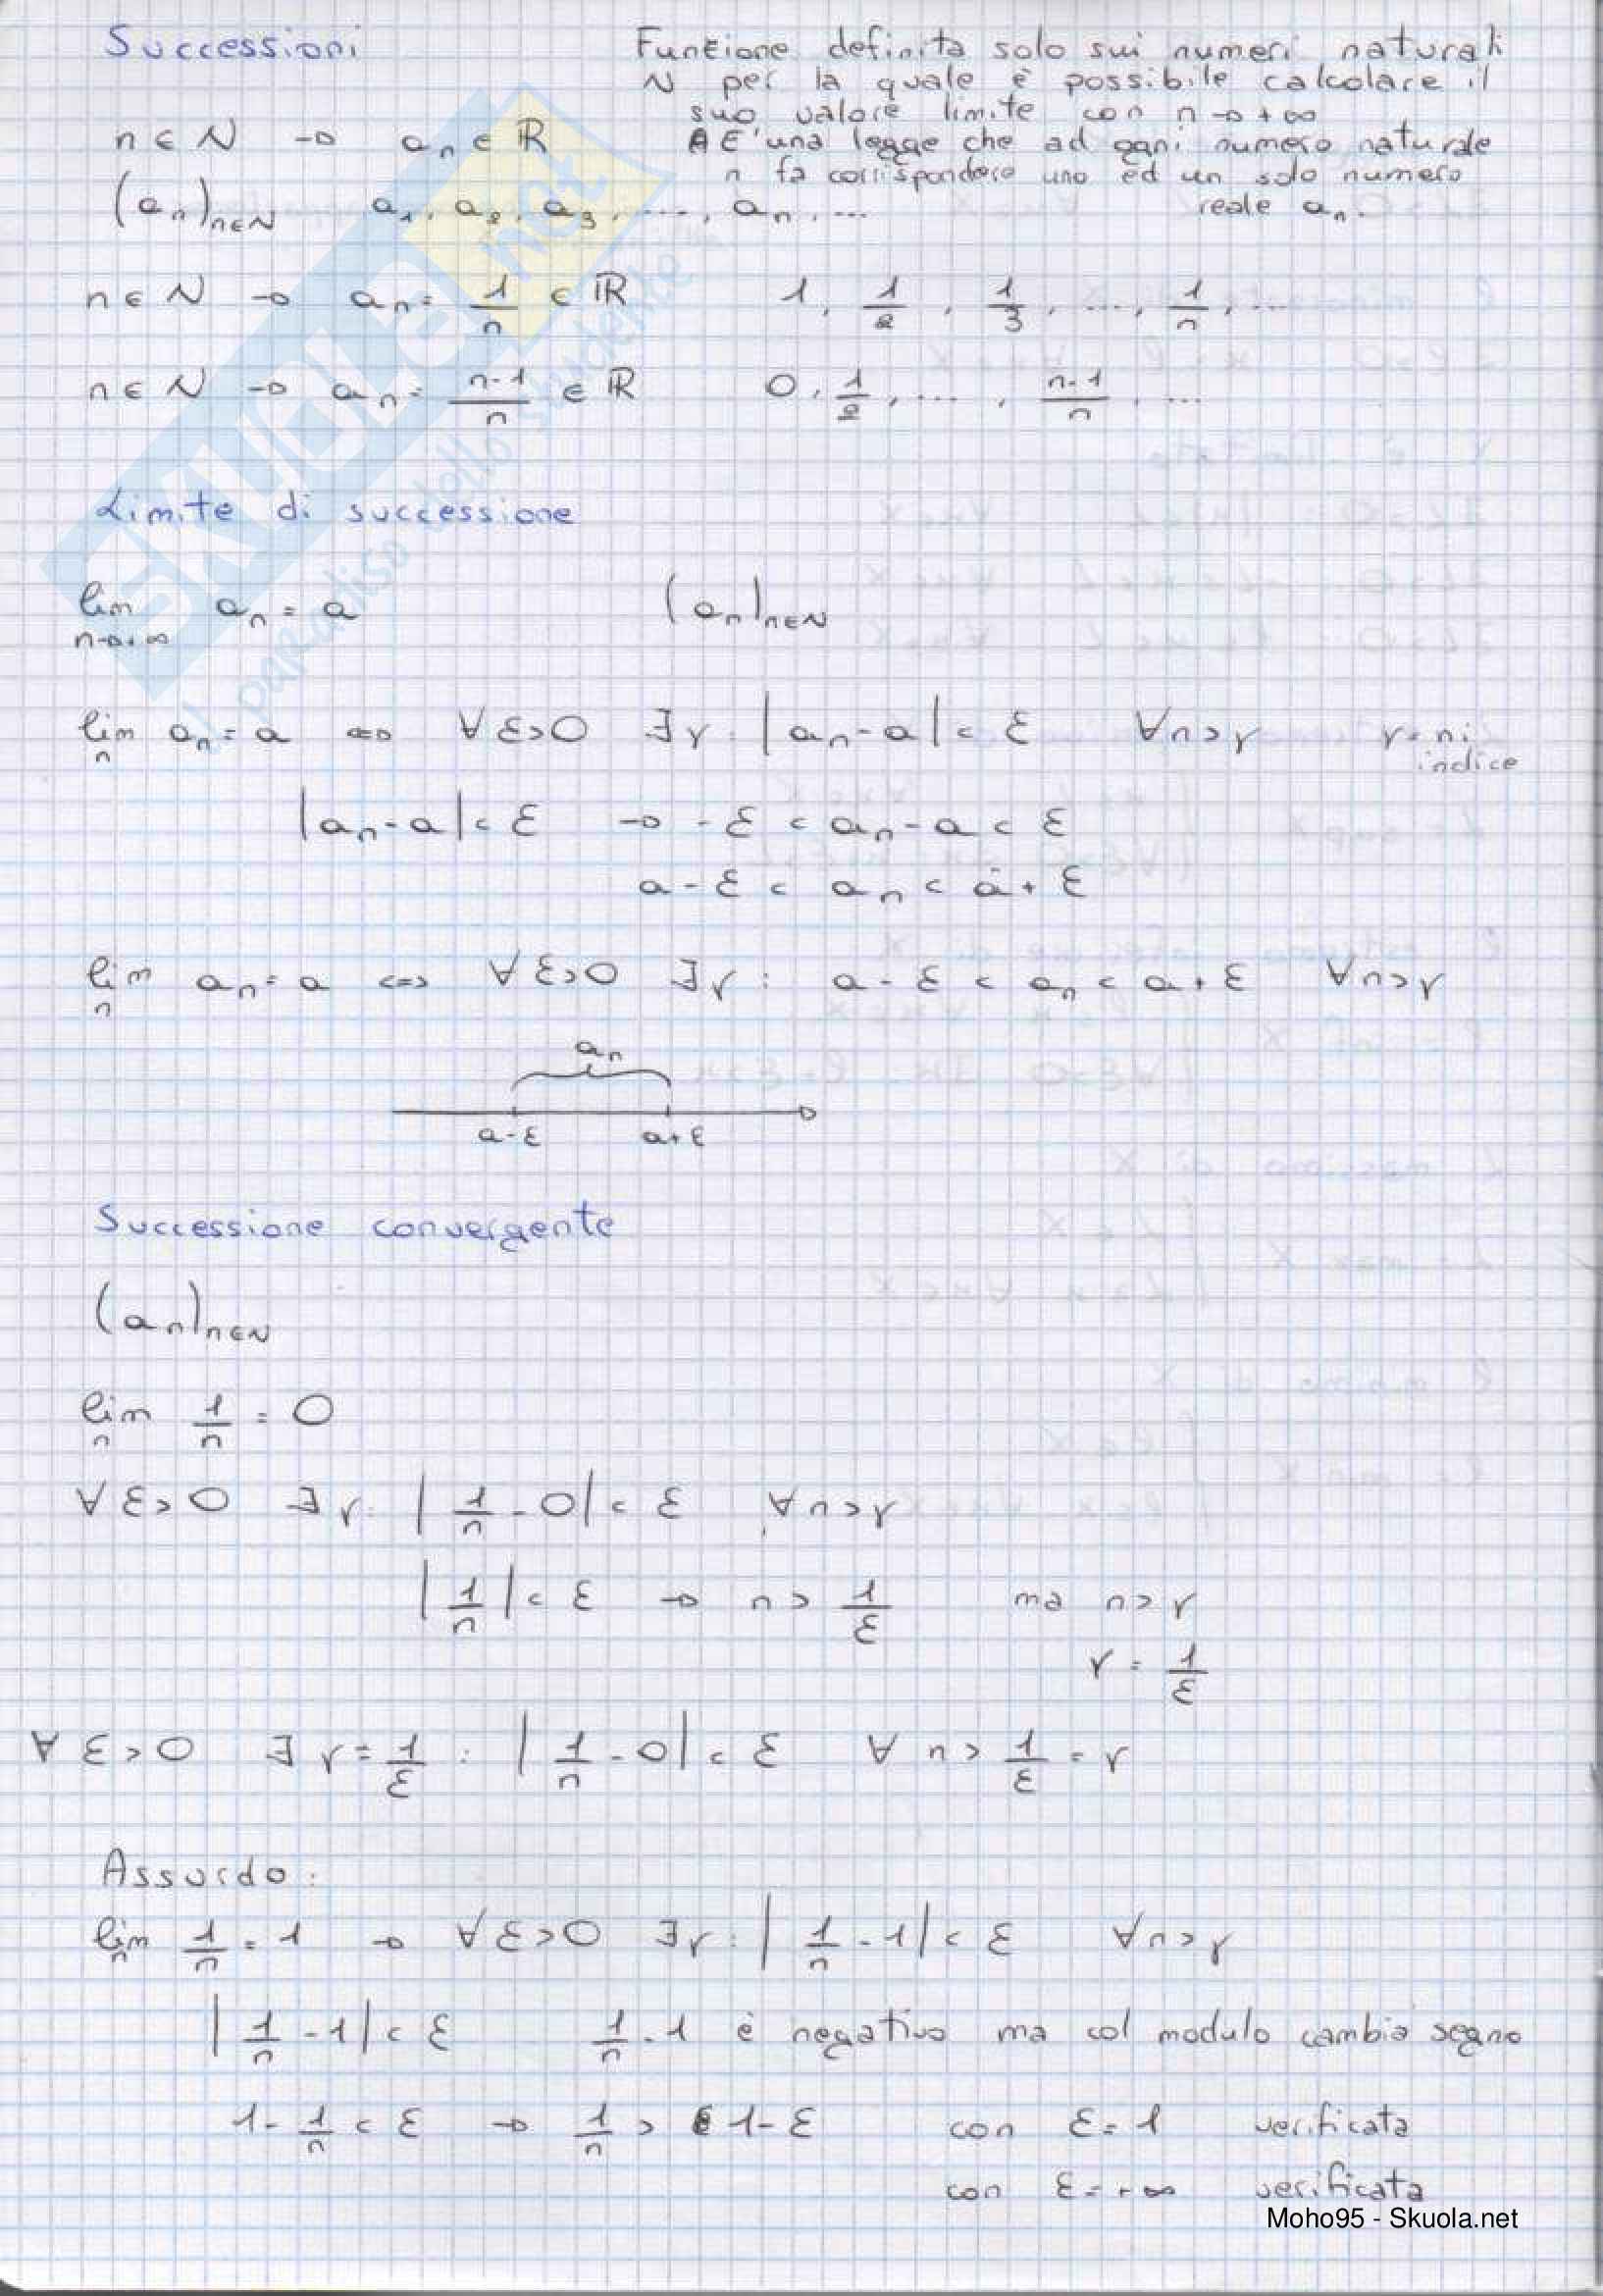 Successioni
Funzione definita solo sui numeri naturali
N per la quale è possibile calcolare il
suo valore limite con n → +∞
E' una legge che ad ogni numero naturale
n fa corrispondere uno ed un solo numero
reale aₙ.
n ∈ N → aₙ ∈ ℝ
(aₙ)ₙ∈N a₁, a₂, a₃, ...., aₙ, ...
n ∈ N → aₙ = 1/n ∈ ℝ 1, 1/2, 1/3, ..., 1/n, ...
n ∈ N → aₙ = n-1/n ∈ ℝ 0, 1/2, ...., n-1/n, ...
Limite di successione
lim n→+∞ aₙ = a (aₙ)ₙ∈N
lim n aₙ = a ⇔ ∀ ε>0 ∃ γ : |aₙ - a| < ε ∀n>γ γ = ni
indice
|aₙ - a| < ε → -ε < aₙ - a < ε
a - ε < aₙ < a + ε
lim n aₙ = a ⇔ ∀ ε>0 ∃ γ : a - ε < aₙ < a + ε ∀n>γ
aₙ
a-ε a+ε
Successione convergente
(aₙ)ₙ∈N
lim n 1/n = 0
∀ ε>0 ∃ γ : |1/n - 0| < ε ∀n>γ
|1/n| < ε → n > 1/ε ma n>γ
γ = 1/ε
∀ ε>0 ∃ γ = 1/ε : |1/n - 0| < ε ∀ n > 1/ε = γ
Assurdo:
lim n 1/n = 1 → ∀ ε>0 ∃ γ : |1/n - 1| < ε ∀n>γ
|1/n - 1| < ε 1/n - 1 è negativo ma col modulo cambia segno
1 - 1/n < ε → 1/n > 1-ε con ε = 1 verificata
con ε = +∞ verificata
Moho95 - Skuola.net
SKUOLA.net
il paradiso dello studente